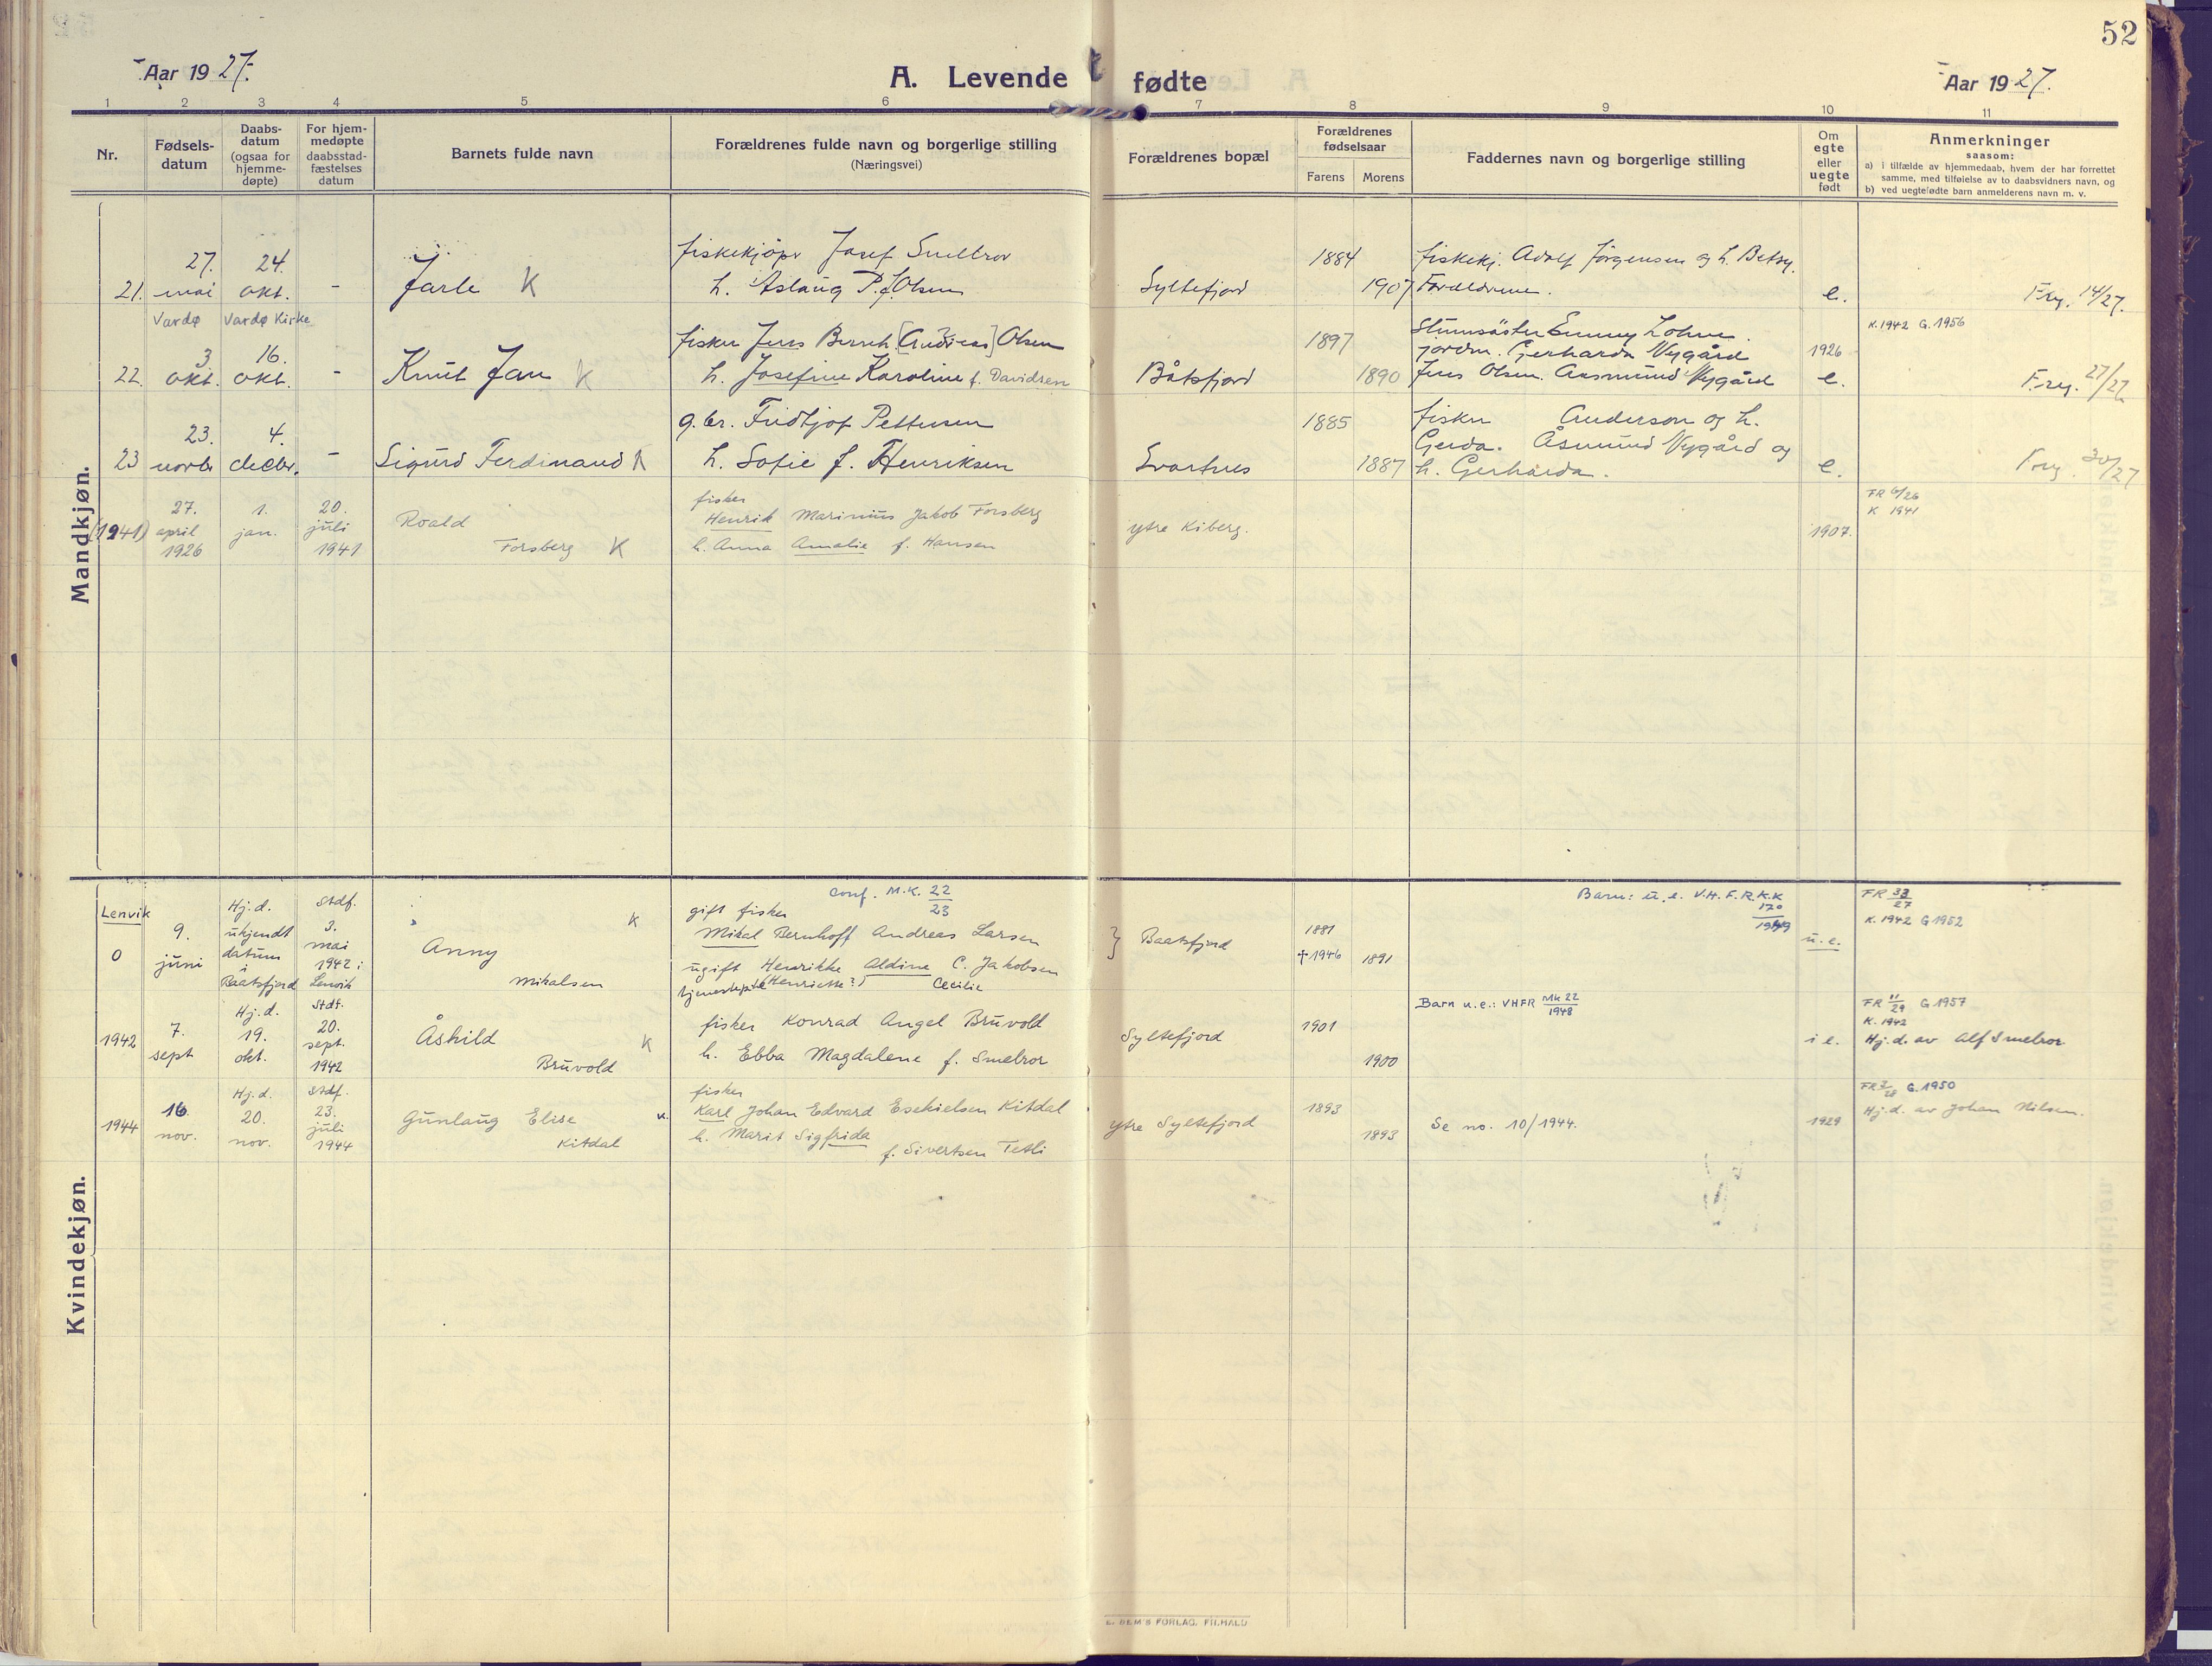 52
Aar 1927.
A. Levende fødte
Aar 1927.
1 2 3 4 5 6 7 8 9 10 11
Nr.
Fødsels-
datum
Daabs-
datum
(ogsaa for
hjemme-
døpte)
For hjem-
medøpte
daabsstad-
fæstelses
datum
Barnets fulde navn
Forældrenes fulde navn og borgerlige stilling
(Næringsvei)
Forældrenes bopæl
Forældrenes
fødselsaar
Farens Morens
Faddernes navn og borgerlige stilling
Om
egte
eller
uegte
født
Anmerkninger
saasom:
a) i tilfælde av hjemmedaab, hvem der har forrettet
samme, med tilføielse av to daabsvidners navn, og
b) ved uegtefødte barn anmelderens navn m. v.
Mandkjøn.
21.
27.
mai
Vardø
24.
okt.
Vardø Kirke
-
Jarle K
fiskekjöper Josef Smellror
h. Aslaug P. f. Olsen
Syltefjord
1884
1907
fiskekj. Adolf Jörgensen og h. Betsy.
Foreldrene.
e.
Frg. 14/27.
22.
3
okt.
16.
okt.
-
Knut Jan K
fisker Jens Bersch. [Andreas] Olsen
h. Josefine Karoline f. Davidsen
Båtsfjord
1897
1890
Emmy Lohne.
jordm. Gerharda Nygård
Jens Olsen. Aasmund Nygård
1926
e.
K. 1942 G. 1956
Frg. 27/27.
23
23.
novbr
4.
decbr.
-
Sigurd Ferdinand K
g.br. Fridtjof Pettersen
h. Sofie f. Henriksen
Svartnes
1885
1887
fisker Anderson og h.
Gerda. Åsmund Nygård og
h. Gerharda.
e.
Frg. 30/27
(1941)
27.
april
1926
1.
jan.
20.
juli
1941
Roald
Forsberg K
fisker
Henrik Marinius Jakob Forsberg
h. Anna Amalie f. Hansen
ytre Kiberg.
1907.
FR 6/26
K 1941
Kvindekjøn.
Lenvik
0
9.
juni
Hj.d.
ukjendt
datum
i
Baatsfjord
Stdf.
3.
mai
1942 i
Lenvik
K
Anny
Mikalsen
conf. M.K. 22/23
gift fisker
Mikal Bernhoff Andreas Larsen
ugift Henrikke Aldine C. Jakobsen
tjenestepike (Henriette?) Cecilie
} Baatsfjord
1881
†1946 1891
Barn: u.e. V.H.F.R.K.K
170/1949
u.e.
FR 33/27
K. 1942 G 1952
1942
7.
sept
Hj.d.
19.
okt.
Stdf.
20.
sept.
1942
Åshild K
Bruvold
fisker Konrad Angel Bruvold
h. Ebba Magdalene f. Smelror
Syltefjord
1901
1900
Barn u.e.: VHFR Mk 22/1948
i e.
FR 11/29 G 1957
K. 1942
Hj.d. av Alf Smelror
1944
16
nov.
Hj.d.
20.
nov.
Stdf.
23.
juli
1944
Gunlaug Elise K.
Kitdal
fisker
Karl Johan Edvard Esekielsen Kitdal
h. Marit Sigfrida
f. Sivertsen Tetli
ytre Syltefjord
1893
1893
Se no. 10/1944.
1929
FR 2/28 G. 1950
Hj.d. av Johan Nilsen.
E. SEM'S FORLAG, FR.HALD